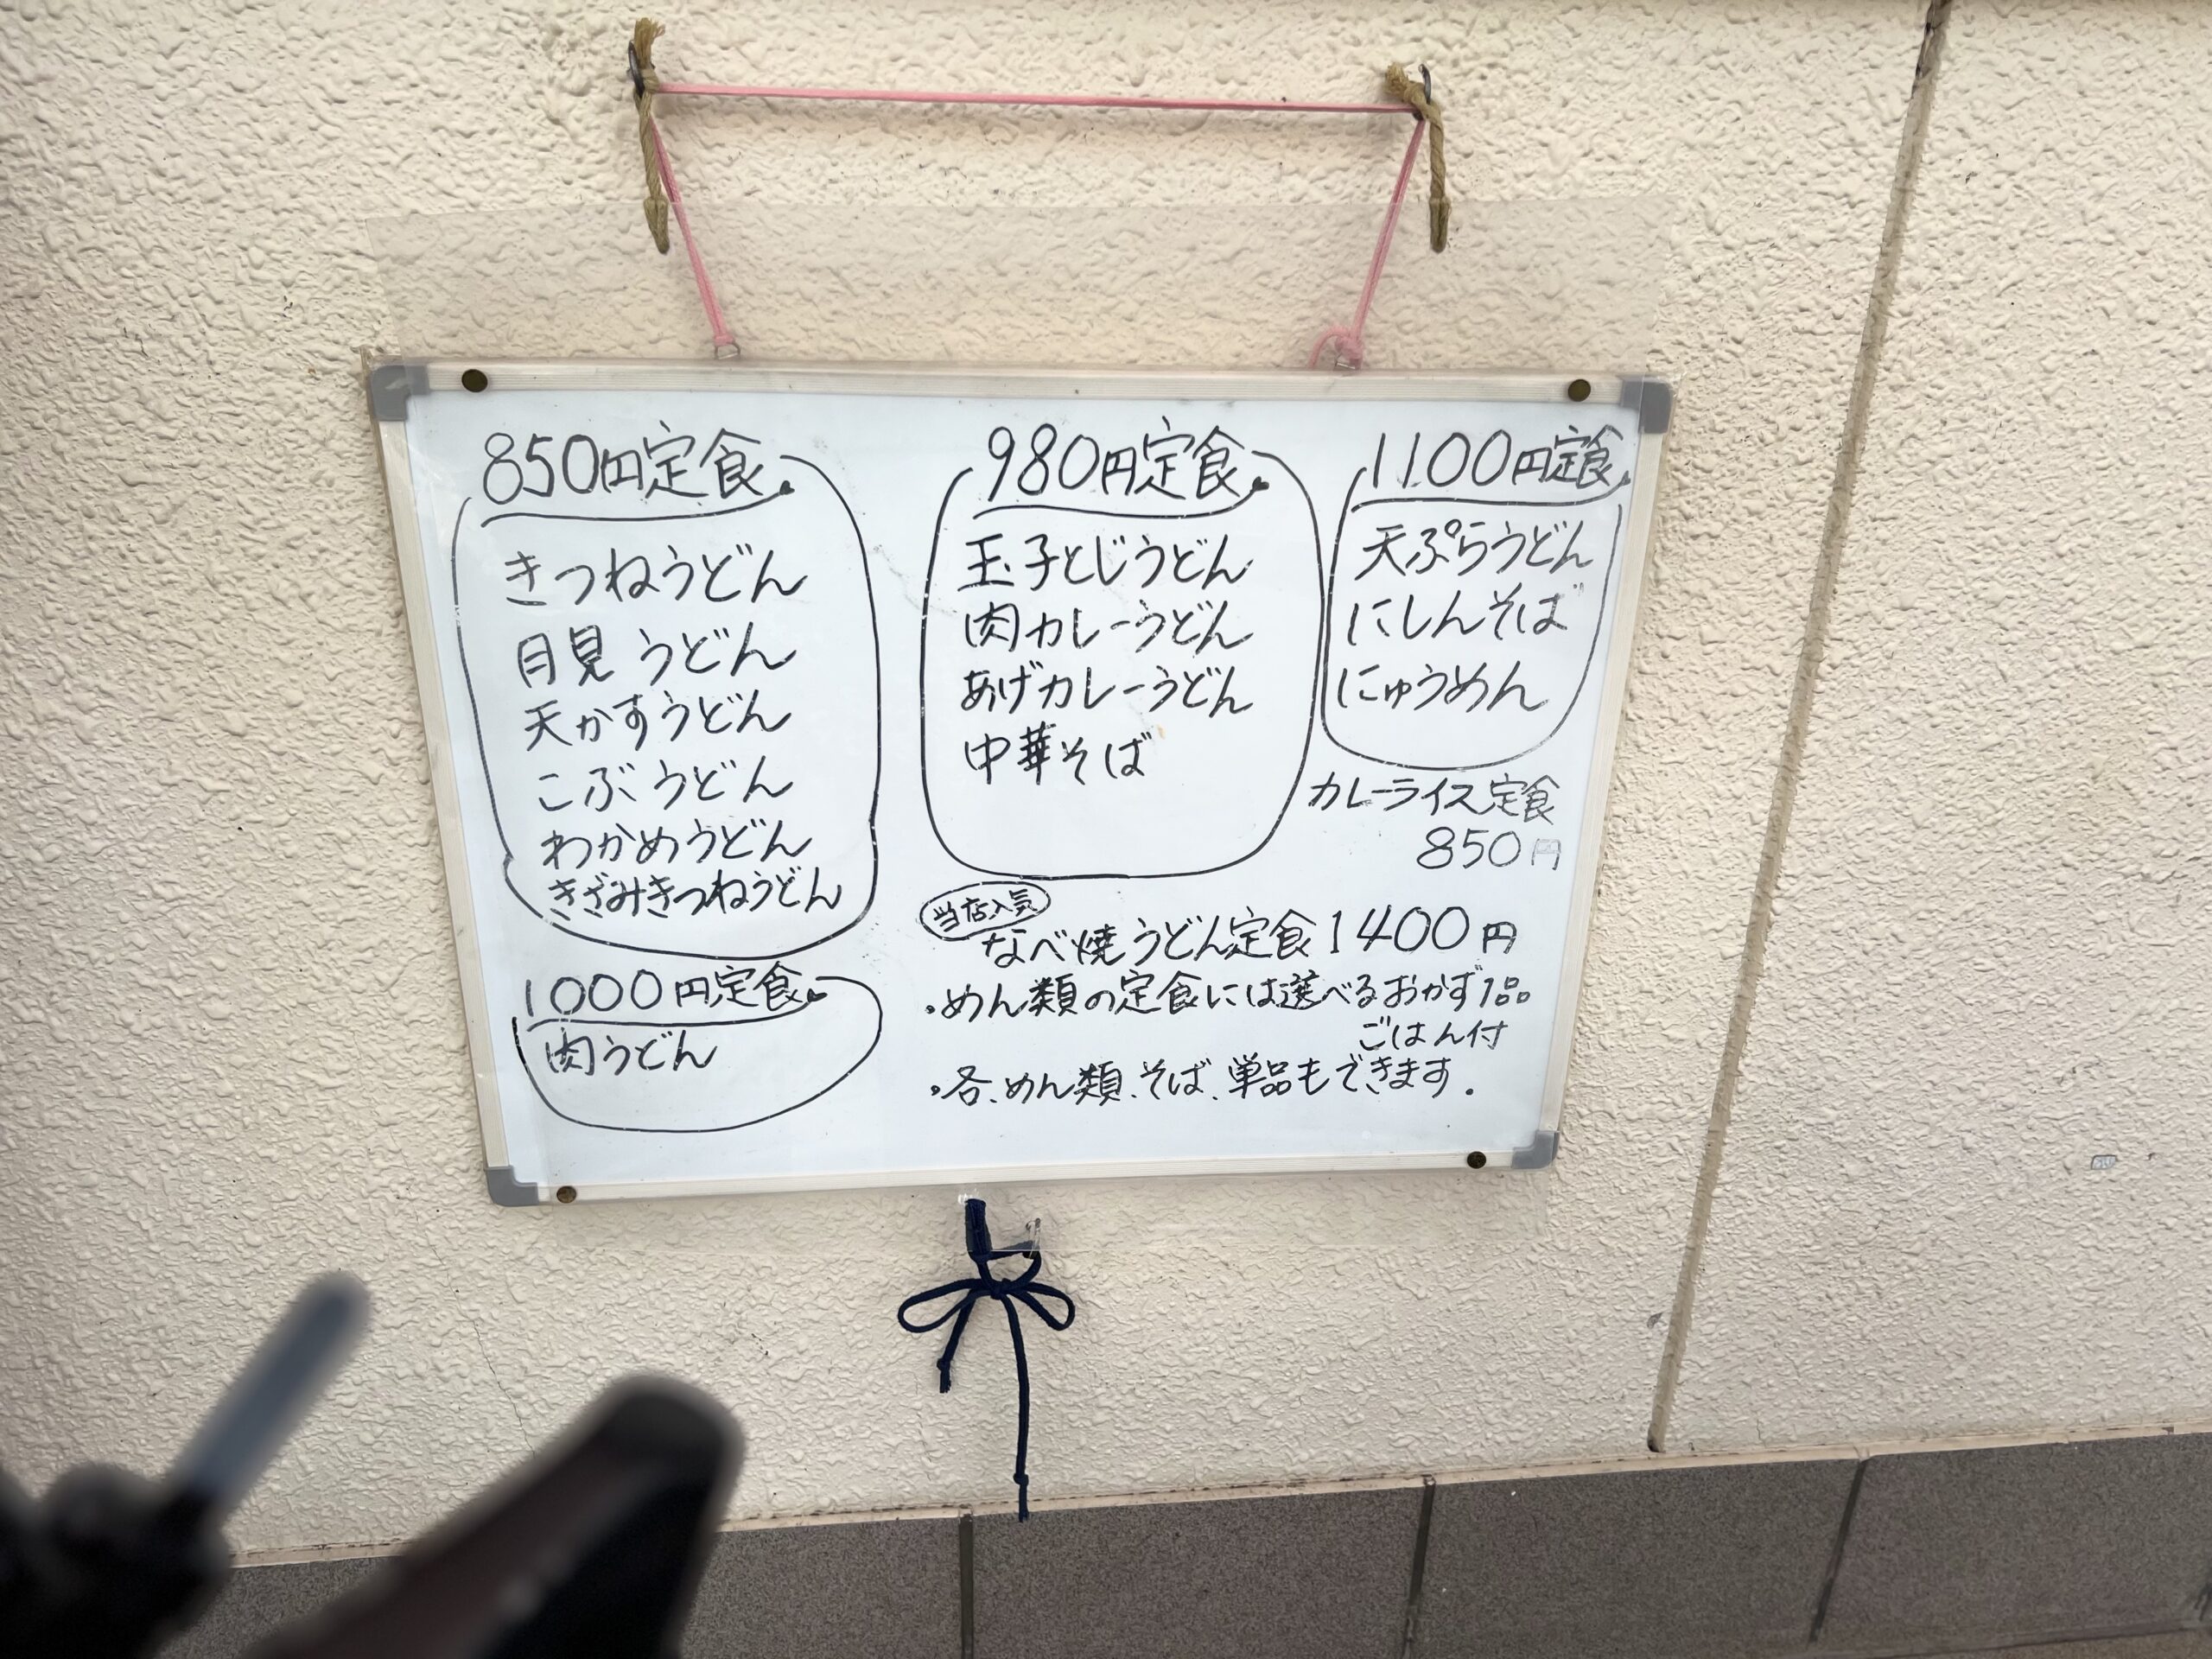 850円定食
きつねうどん
月見うどん
天かすうどん
こぶうどん
わかめうどん
きざみきつねうどん
1000円定食
肉うどん
980円定食
玉子とじうどん
肉カレーうどん
あげカレーうどん
中華そば
1100円定食
天ぷらうどん
にしんそば
にゅうめん
カレーライス定食
850円
当店人気
なべ焼うどん定食1400円
・めん類の定食には選べるおかず1品
ごはん付
・各、めん類、そば、単品もできます.